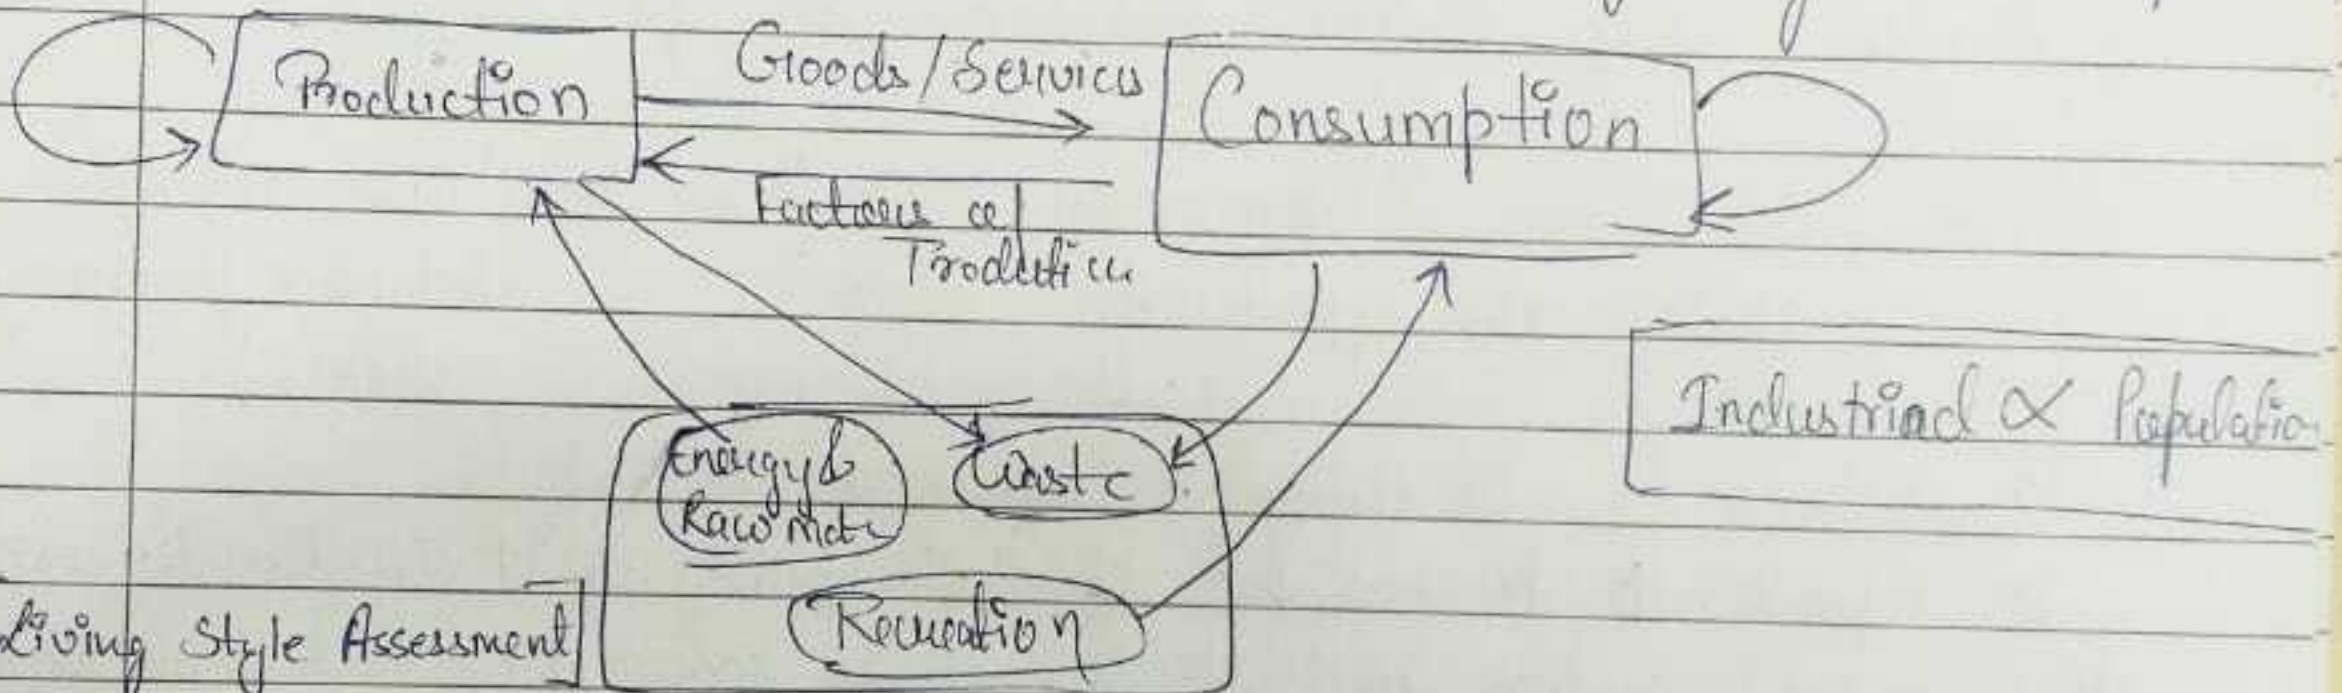 Production
Goods/Services
Consumption
Factors of
Production
Industrial ∝ Population
Energy &
Raw mate
Waste
Recreation
Living Style Assessment]